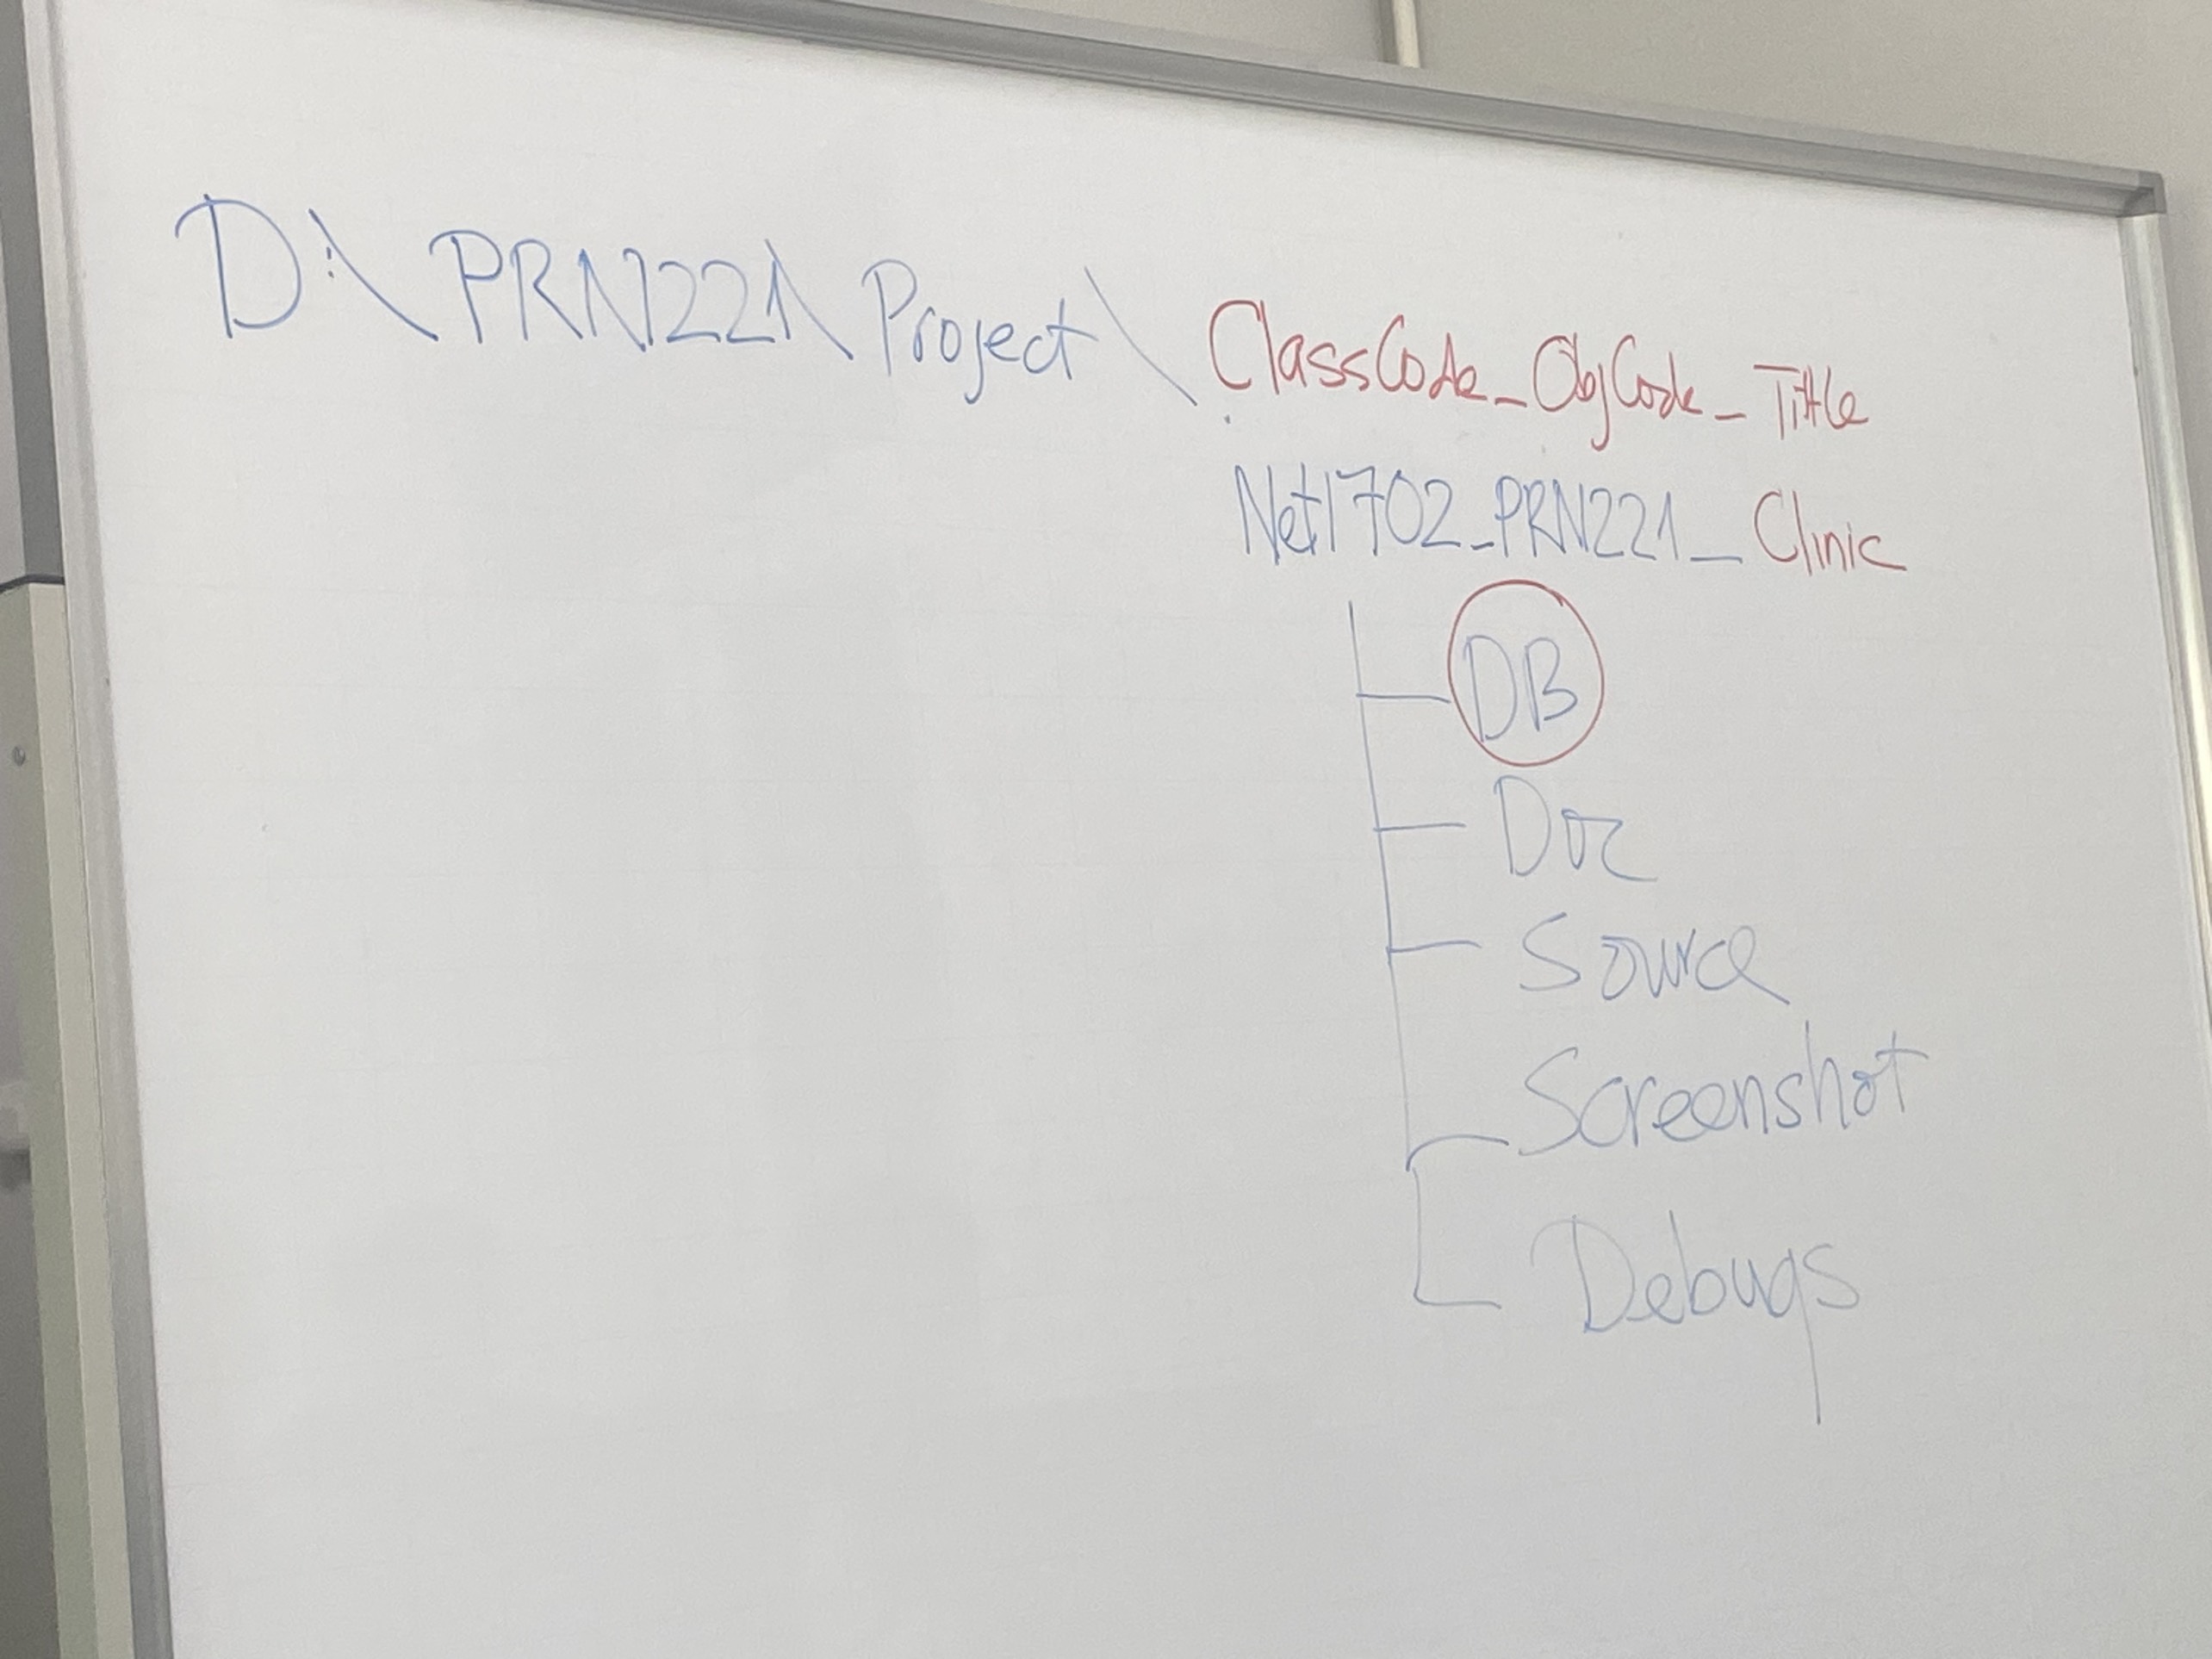 D:\PRN221\Project\ClassCode_ObjCode_Title
Net1702_PRN221_Clinic
DB
Doc
Source
Screenshot
Debugs